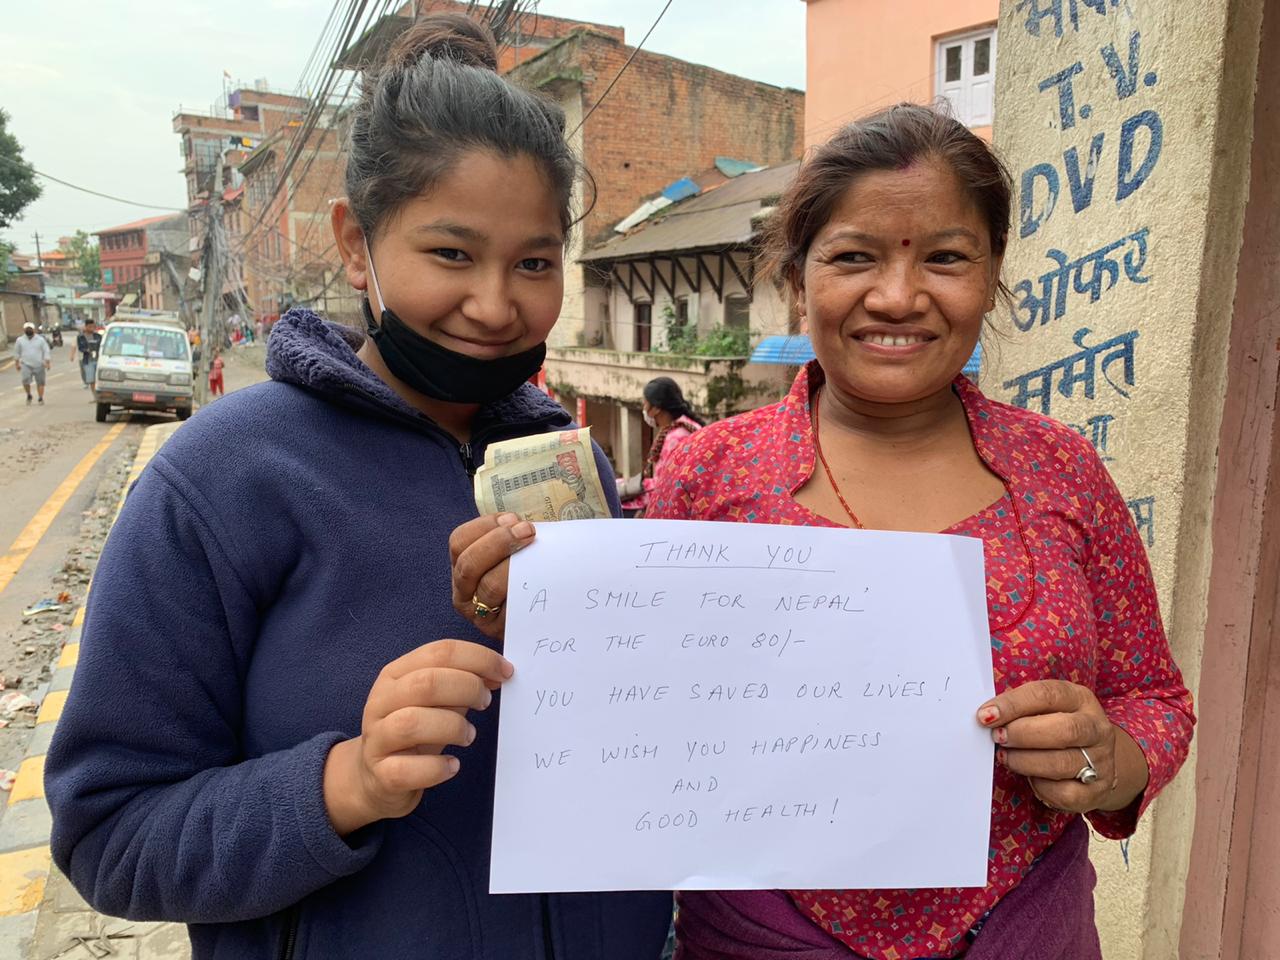 THANK YOU
'A SMILE FOR NEPAL'
FOR THE EURO 80/-
YOU HAVE SAVED OUR LIVES!
WE WISH YOU HAPPINESS
AND
GOOD HEALTH!
T.V.
DVD
ओफर
मर्मत